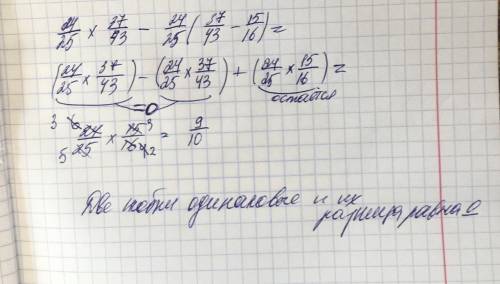 24/25 × 37/43 − 24/25 (37/43 − 15/16) =
(24/25 × 37/43) − (24/25 × 37/43) + (24/25 × 15/16) =
=0 остаётся
24/25 × 15/16 = 9/10
Две скобки одинаковые и их
разница равна 0